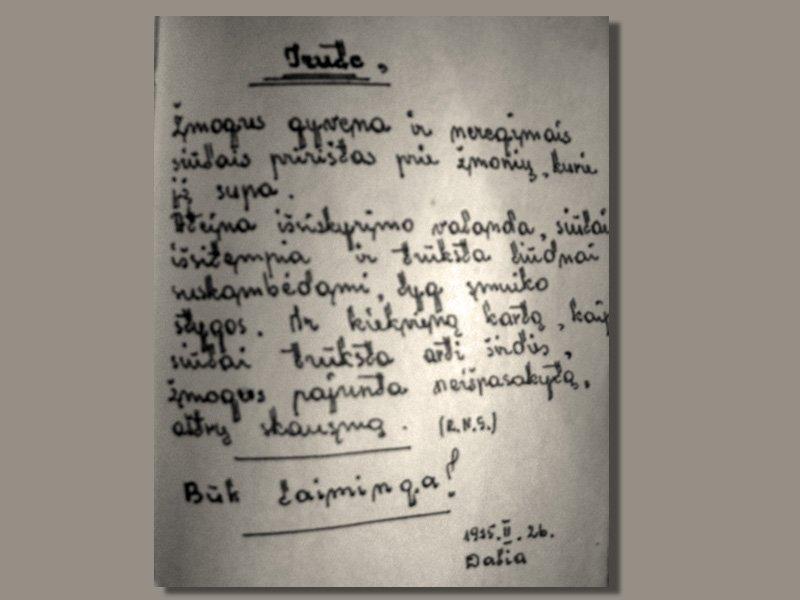 Irute,
Žmogus gyvena ir neregimais
siūlais pririštas prie žmonių, kurie
jį supa.
Ateina išsiskyrimo valanda, siūlai
išsitempia ir trūksta liūdnai
suskambėdami, lyg smuiko
stygos. Ir kiekvieną kartą, kaip
siūlai trūksta arti širdies,
žmogus pajunta neišpasakytą,
aštrų skausmą. (R.N.S.)
Būk laiminga!
II. 26.
Dalia